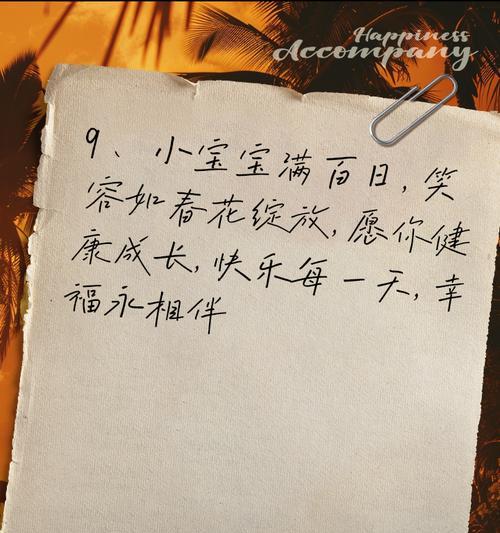 Happiness
Accompany
9、小宝宝满百日,笑
容如春花绽放,愿你健
康成长,快乐每一天,幸
福永相伴